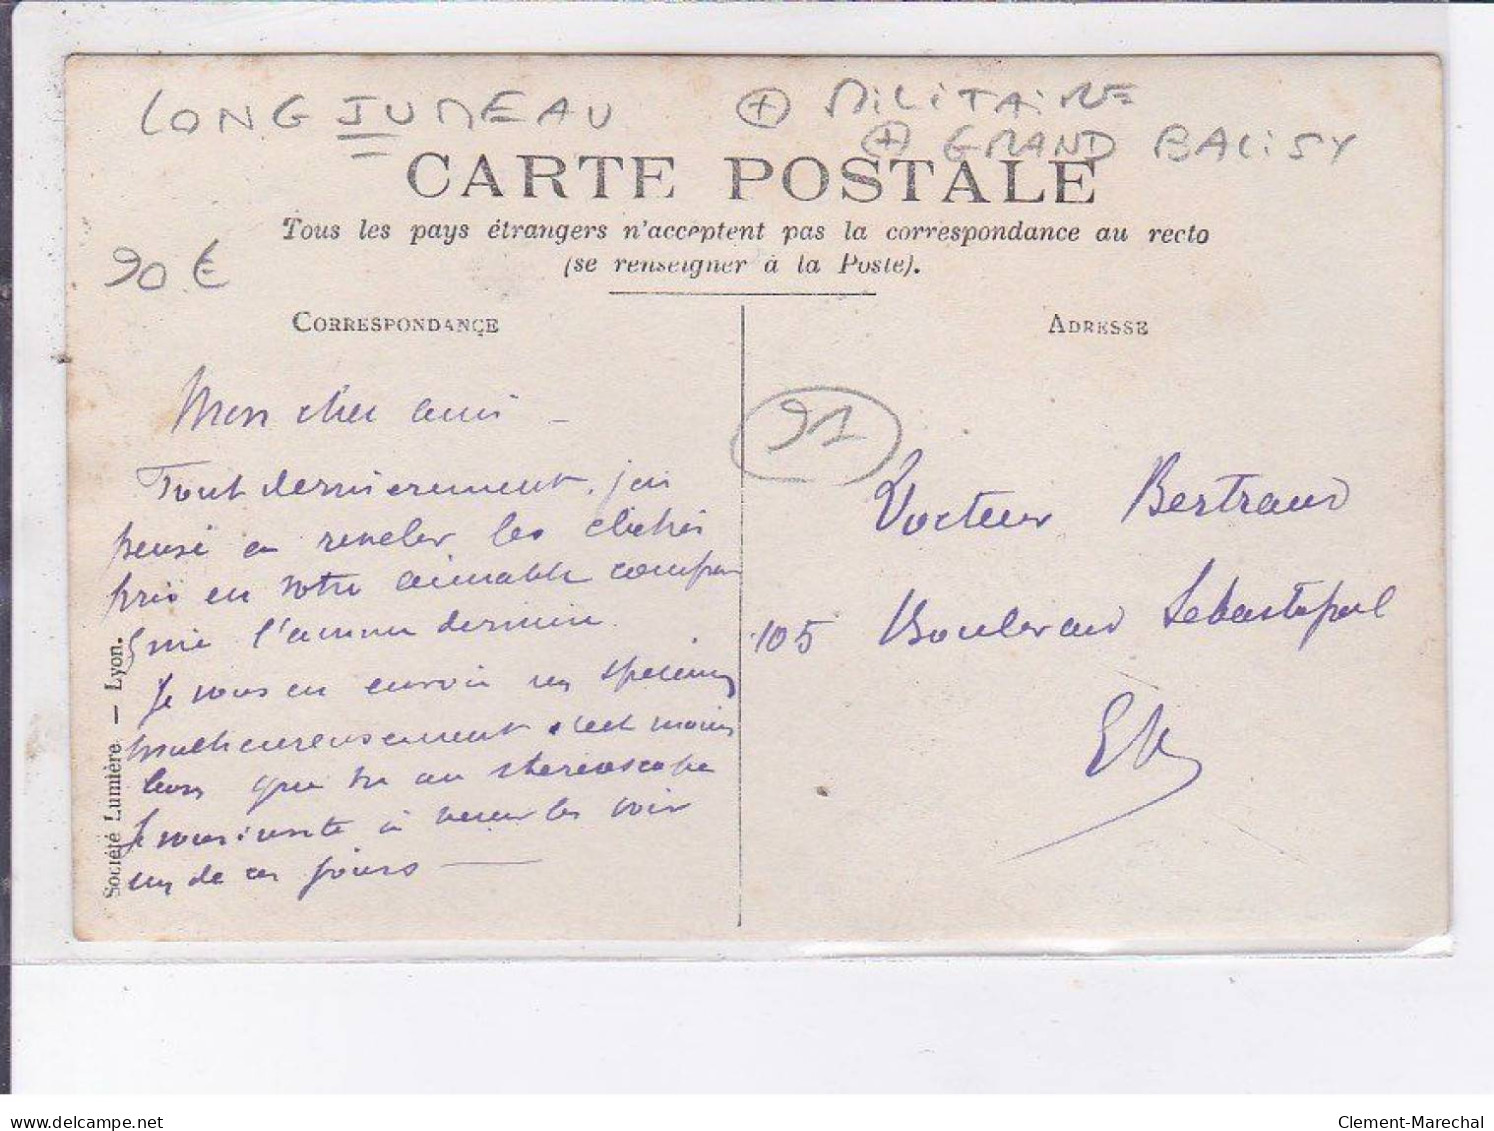 LONGJUMEAU + MILITAIRE
+ GRAND BALISY
CARTE POSTALE
Tous les pays étrangers n'acceptent pas la correspondance au recto
(se renseigner à la Poste).
90 €
CORRESPONDANCE
Mon cher ami –
Tout dernièrement, j'ai
pensé à révéler les clichés
pris en votre aimable compa
gnie l'année dernière.
Je vous en envoie un spécimen
malheureusement c'est moins
bien que vu au stéréoscope
Je vous invite à venir les voir
un de ces jours —
Société Lumière. — Lyon.
ADRESSE
91
Docteur Bertrand
105 Boulevard Sebastopol
EV
delcampe.net
Clement-Marechal